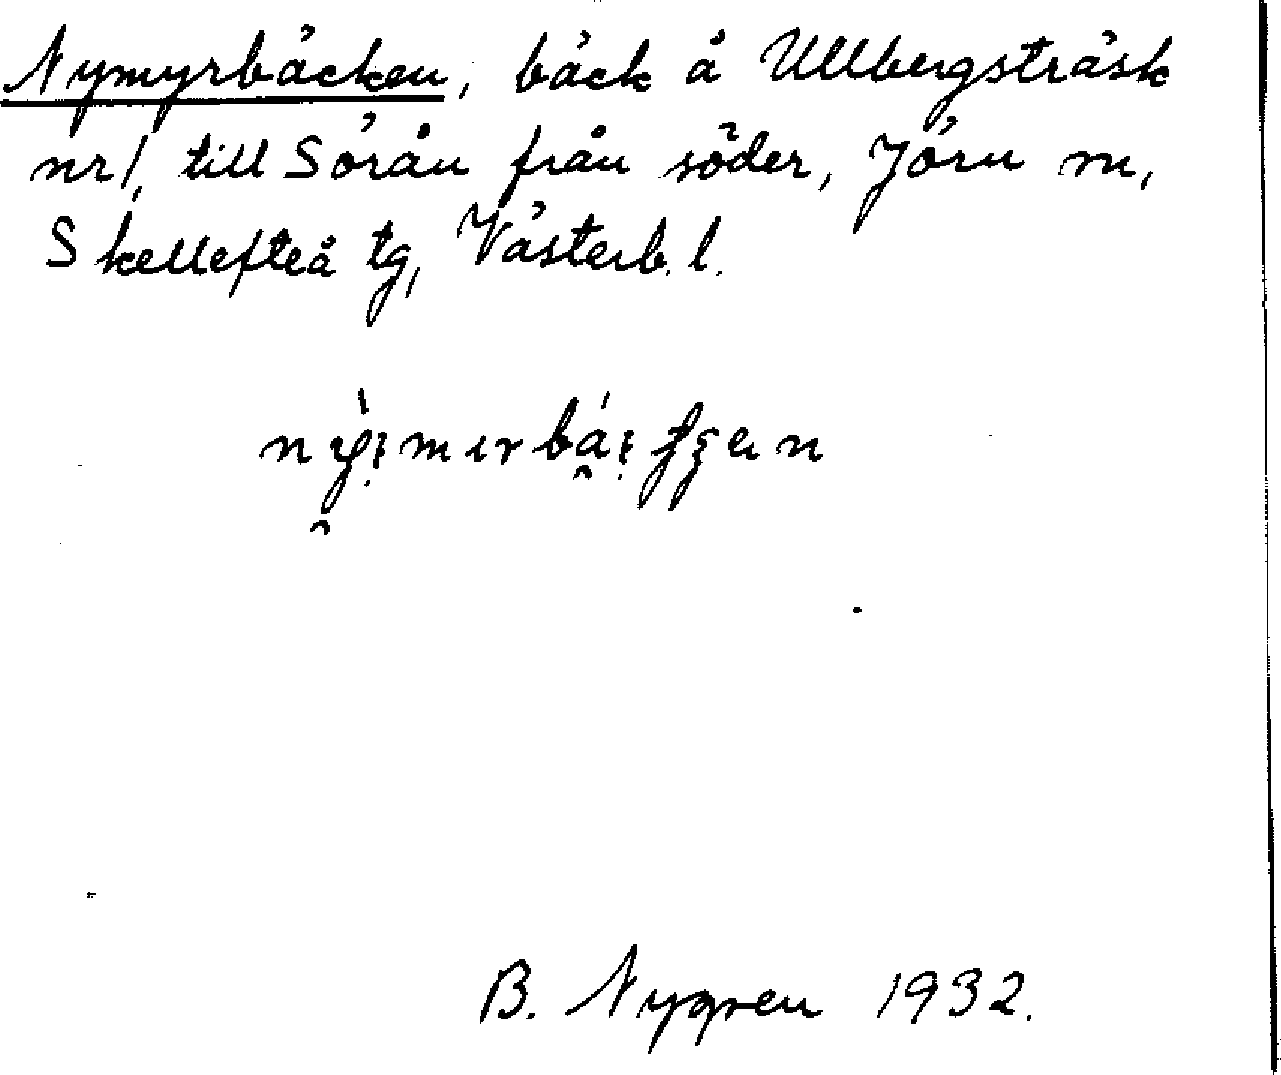 Nymyrbäcken, bäck å Ullbergsträsk
nr 1, till Sörån från söder, Jörn sn,
Skellefteå tg, Västerb. l.
B. Nygren 1932.